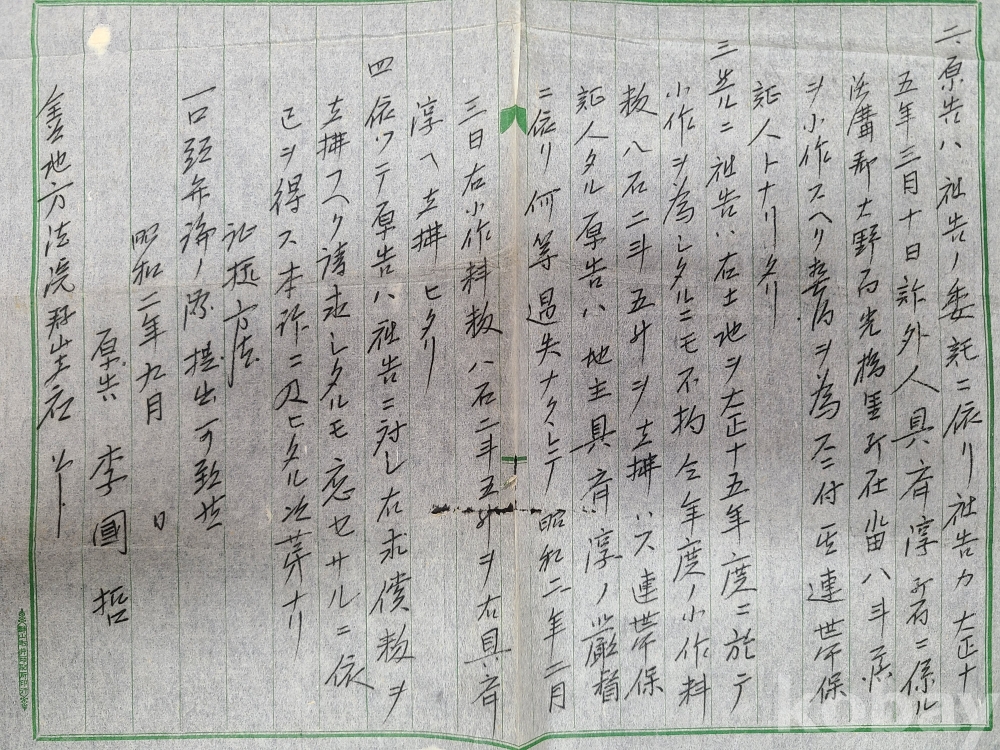 二、原告ハ被告ノ委託ニ依リ被告カ大正十
五年三月十日訴外人具 淳所有ニ係ル
郡大野面光 里所在畓八斗落
ヲ小作スヘク 為ヲ為スニ付其連帯保
証人トナリタリ
三 然ルニ被告ハ右土地ヲ大正十五年度ニ於テ
小作ヲ為シタルニモ不拘仝年度ノ小作料
籾八石二斗五升ヲ支拂ハス連帯保
証人タル原告ハ地主具 淳ノ嚴督
ニ依リ何等過失ナクシテ昭和二年二月
三日右小作料籾八石二斗五升ヲ右具
淳ヘ支拂ヒタリ
四 依ツテ原告ハ被告ニ対シ右求償籾ヲ
支拂フヘク請求シタルモ應セサルニ依
已ヲ得ス本訴ニ及ヒタル次第ナリ
証拠方法
一口頭弁論ノ際提出可致候
昭和二年九月 日
原告 李國哲
地方法院 支 御中
kobay